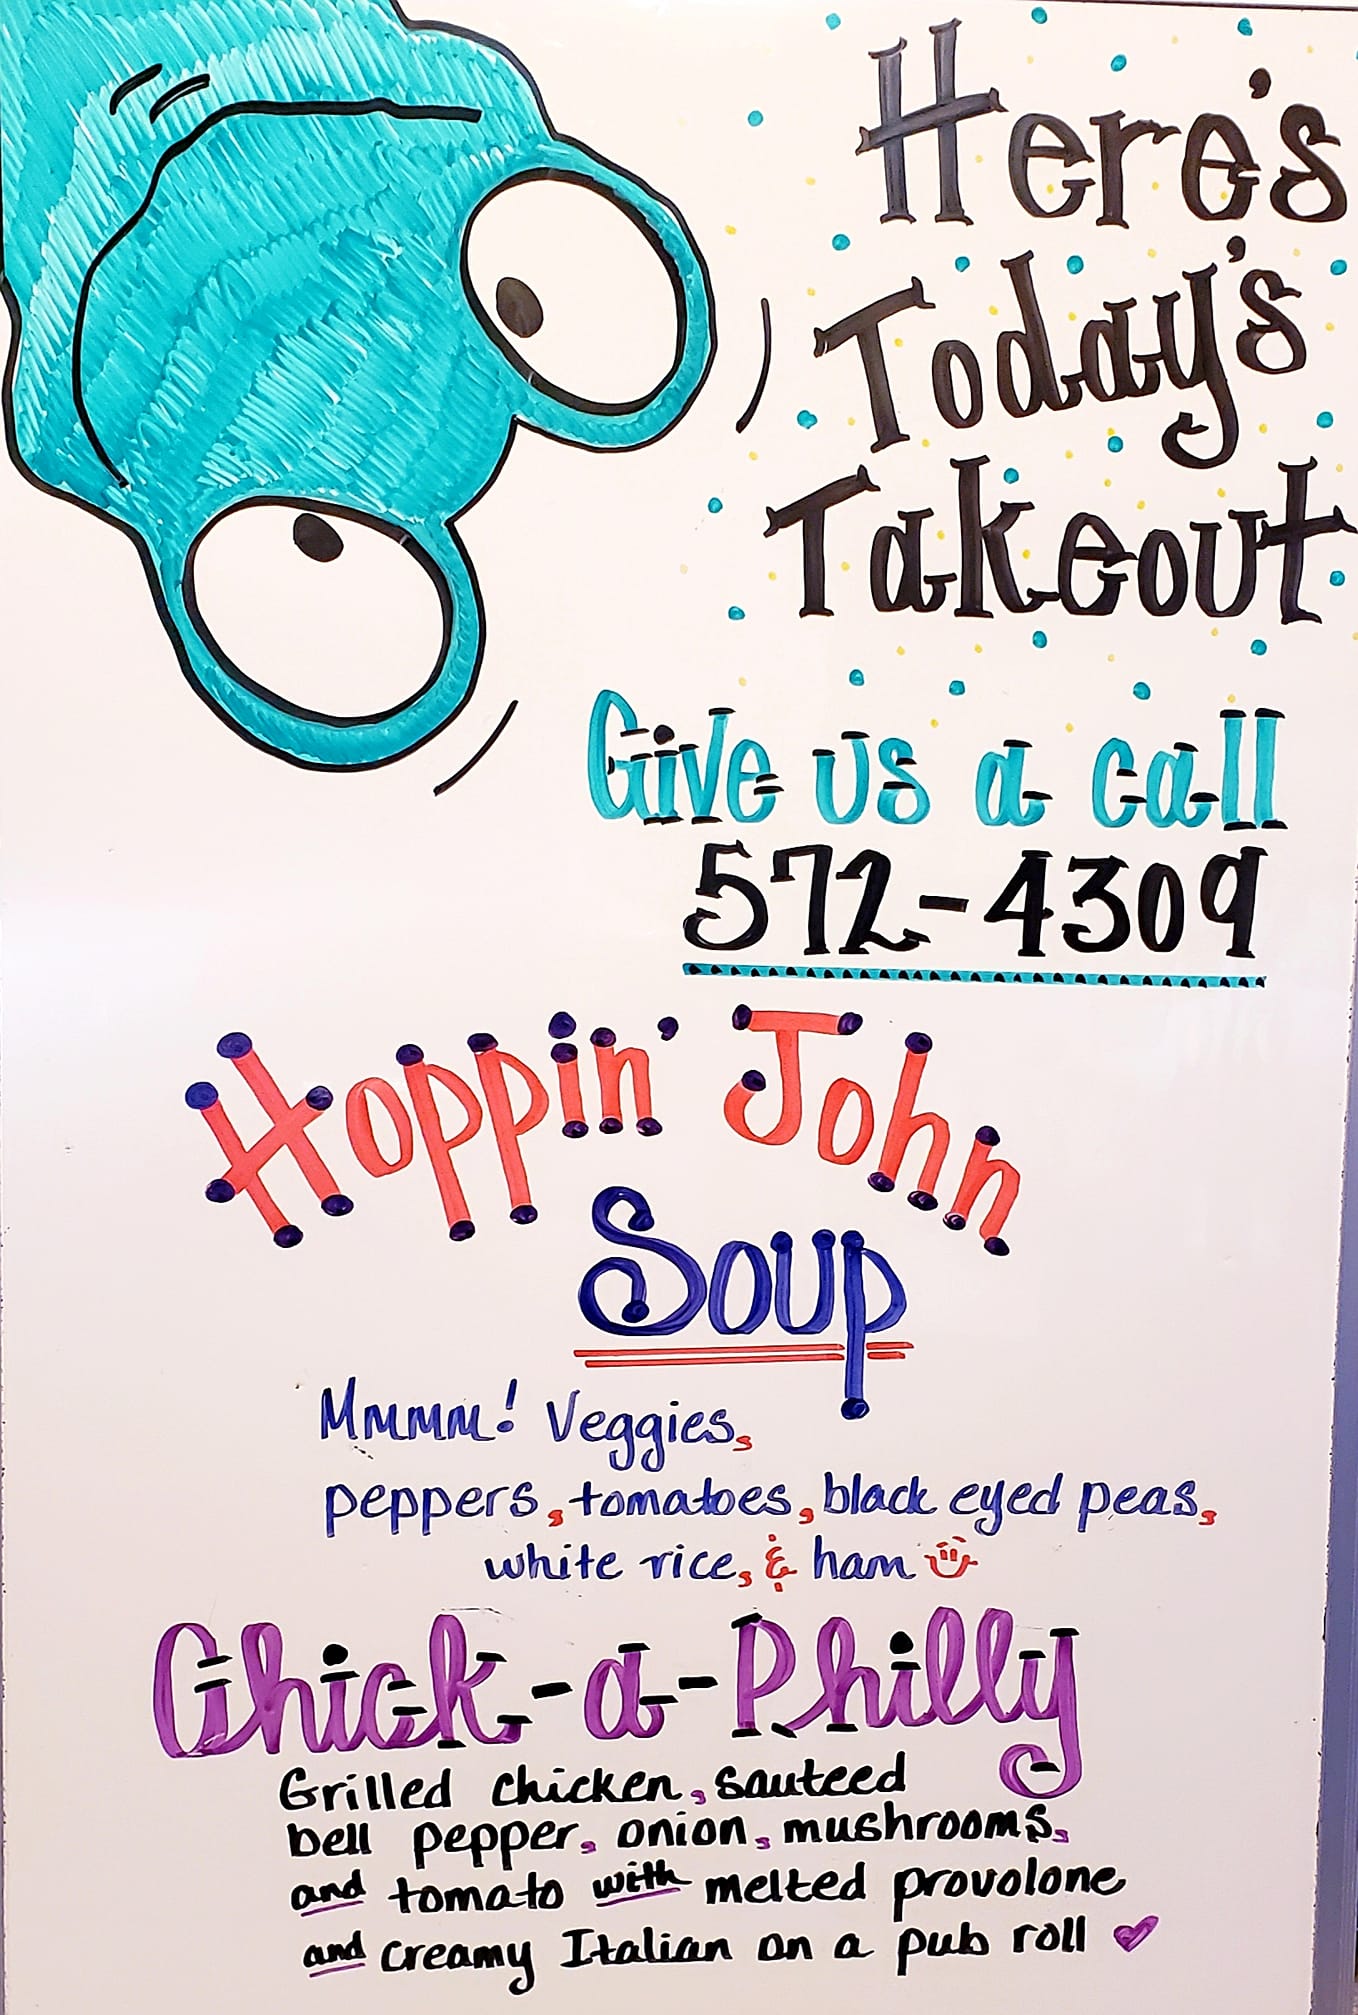 Here's
Today's
Takeout
Give us a call
572-4309
Hoppin' John
Soup
Mmmm! Veggies,
peppers, tomatoes, black eyed peas,
white rice, & ham
Chick-a-Philly
Grilled chicken, sauteed
bell pepper, onion, mushrooms,
and tomato with melted provolone
and creamy Italian on a pub roll